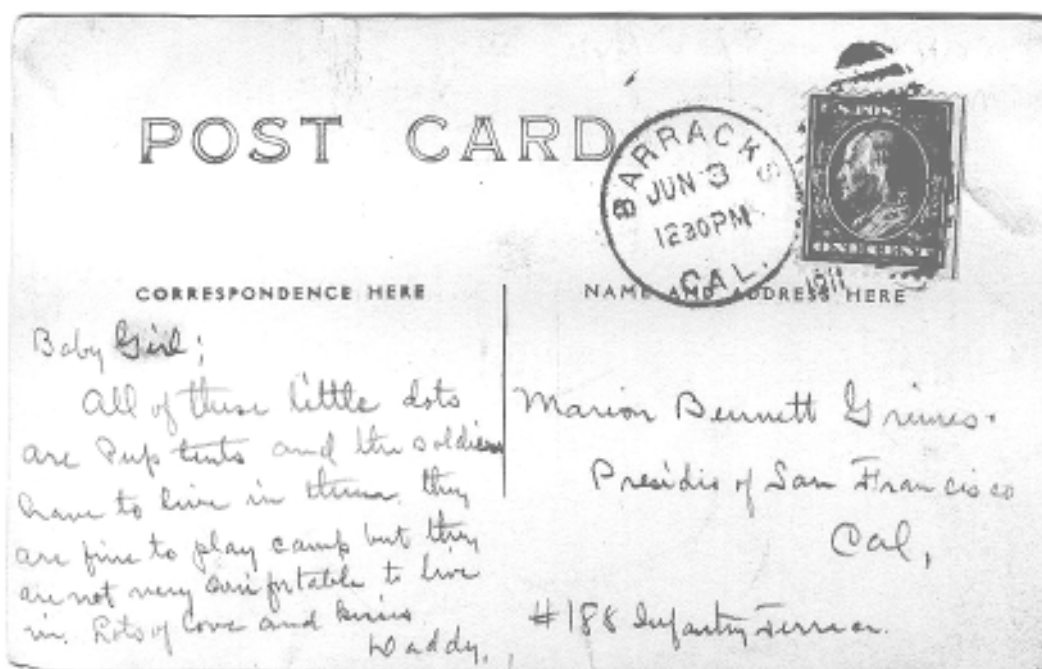 POST CARD
BARRACKS
JUN 3
1230PM
CAL.
1911
U.S. POST
ONE CENT
CORRESPONDENCE HERE
NAME AND ADDRESS HERE
Baby Girl;
All of these little dots
are Pup tents and the soldiers
have to live in them. they
are fine to play camp but they
are not very comfortable to live
in. Lots of love and kisses
Daddy.
Marion Bennett Grimes.
Presidio of San Francisco
Cal,
#188 Infantry Terrace.